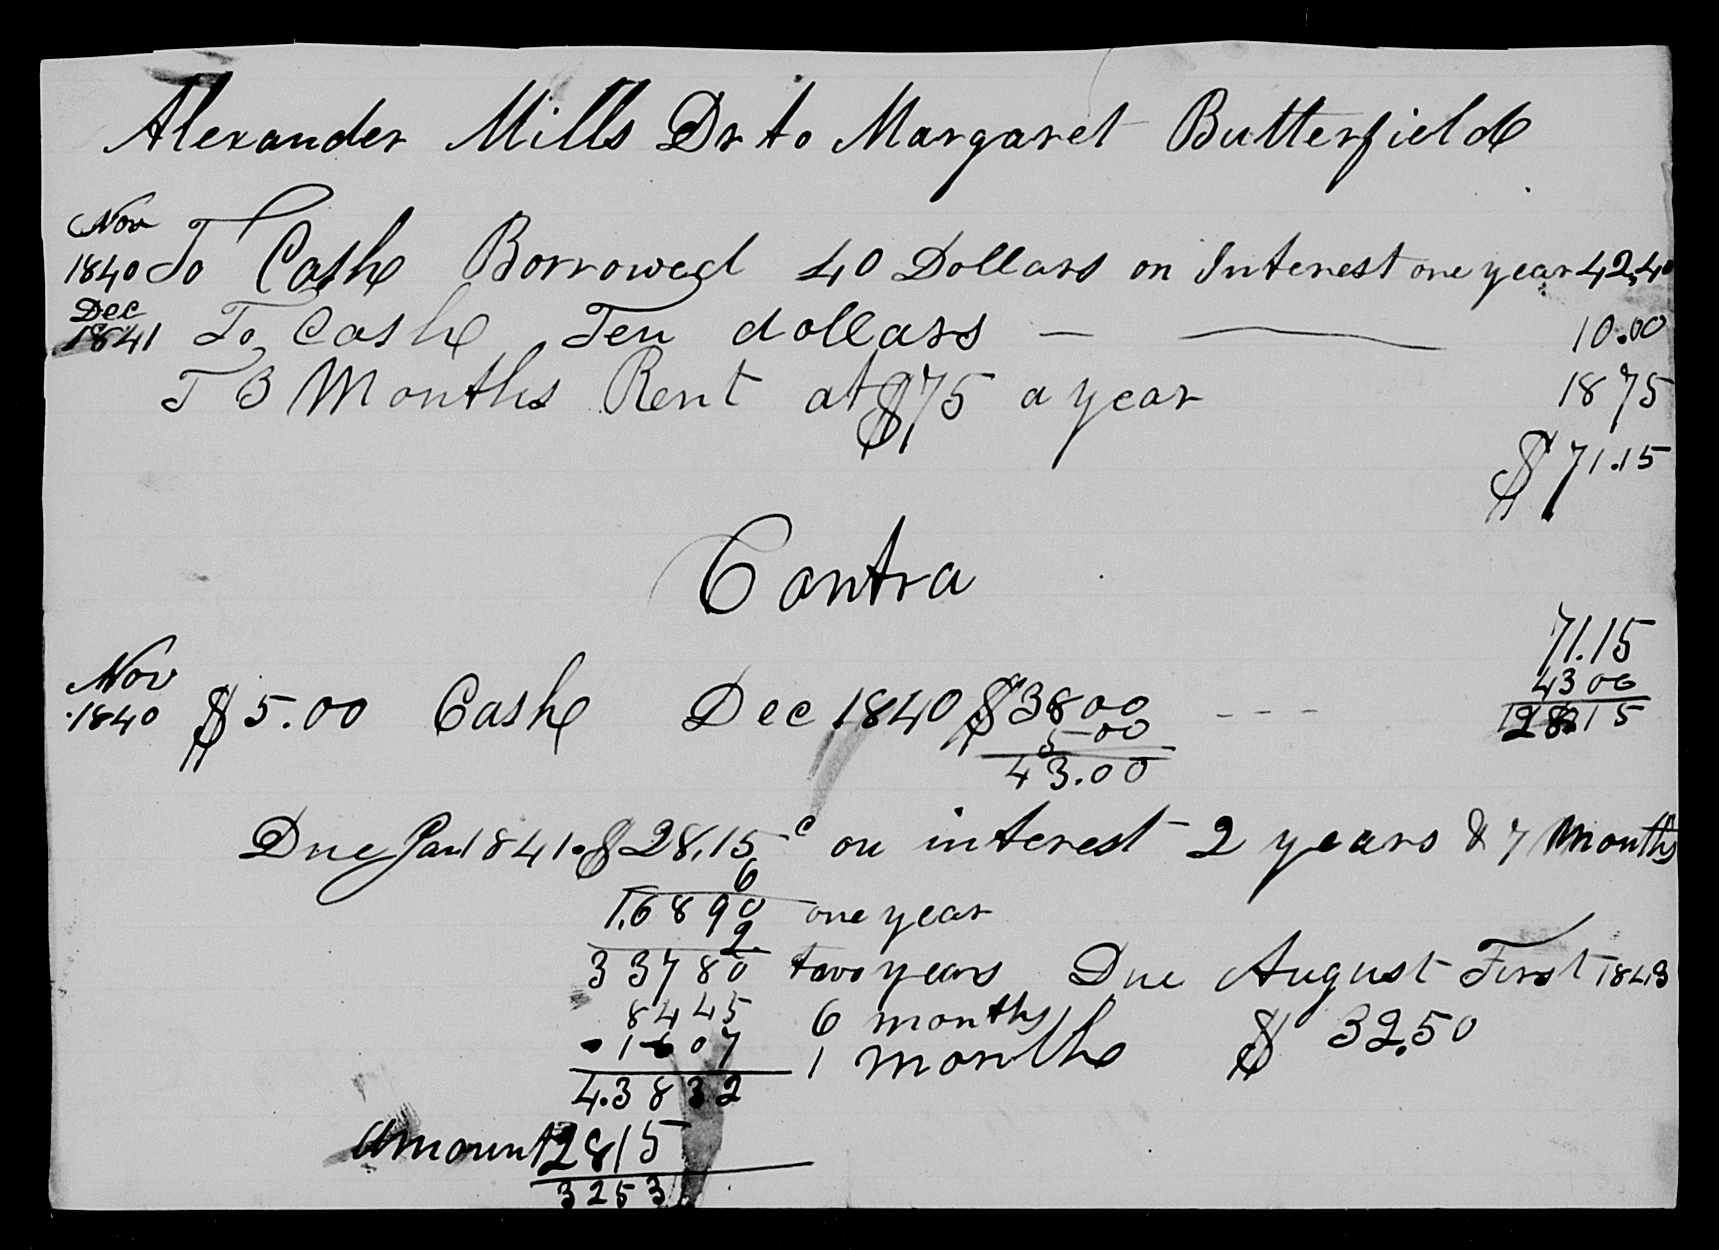 Alexander Mills Dr to Margaret Butterfield
Nov
1840 To Cash Borrowed 40 Dollars on Interest one year 42,40
Dec
1841 To Cash Ten dollars — — 10.00
T 3 Months Rent at $75 a year 1875
$71.15
Contra
71.15
4300
2815
Nov
1840 $5.00 Cash Dec 1840 $3800 - - -
5-00
43.00
Due Jan 1841. $28,15 c on interest 2 years & 7 Months
6
1,6890 one year
2.
33780 two years Due August First 1843
8445 6 months $32.50
1407 1 months
4.3832
Amount 2815
3253